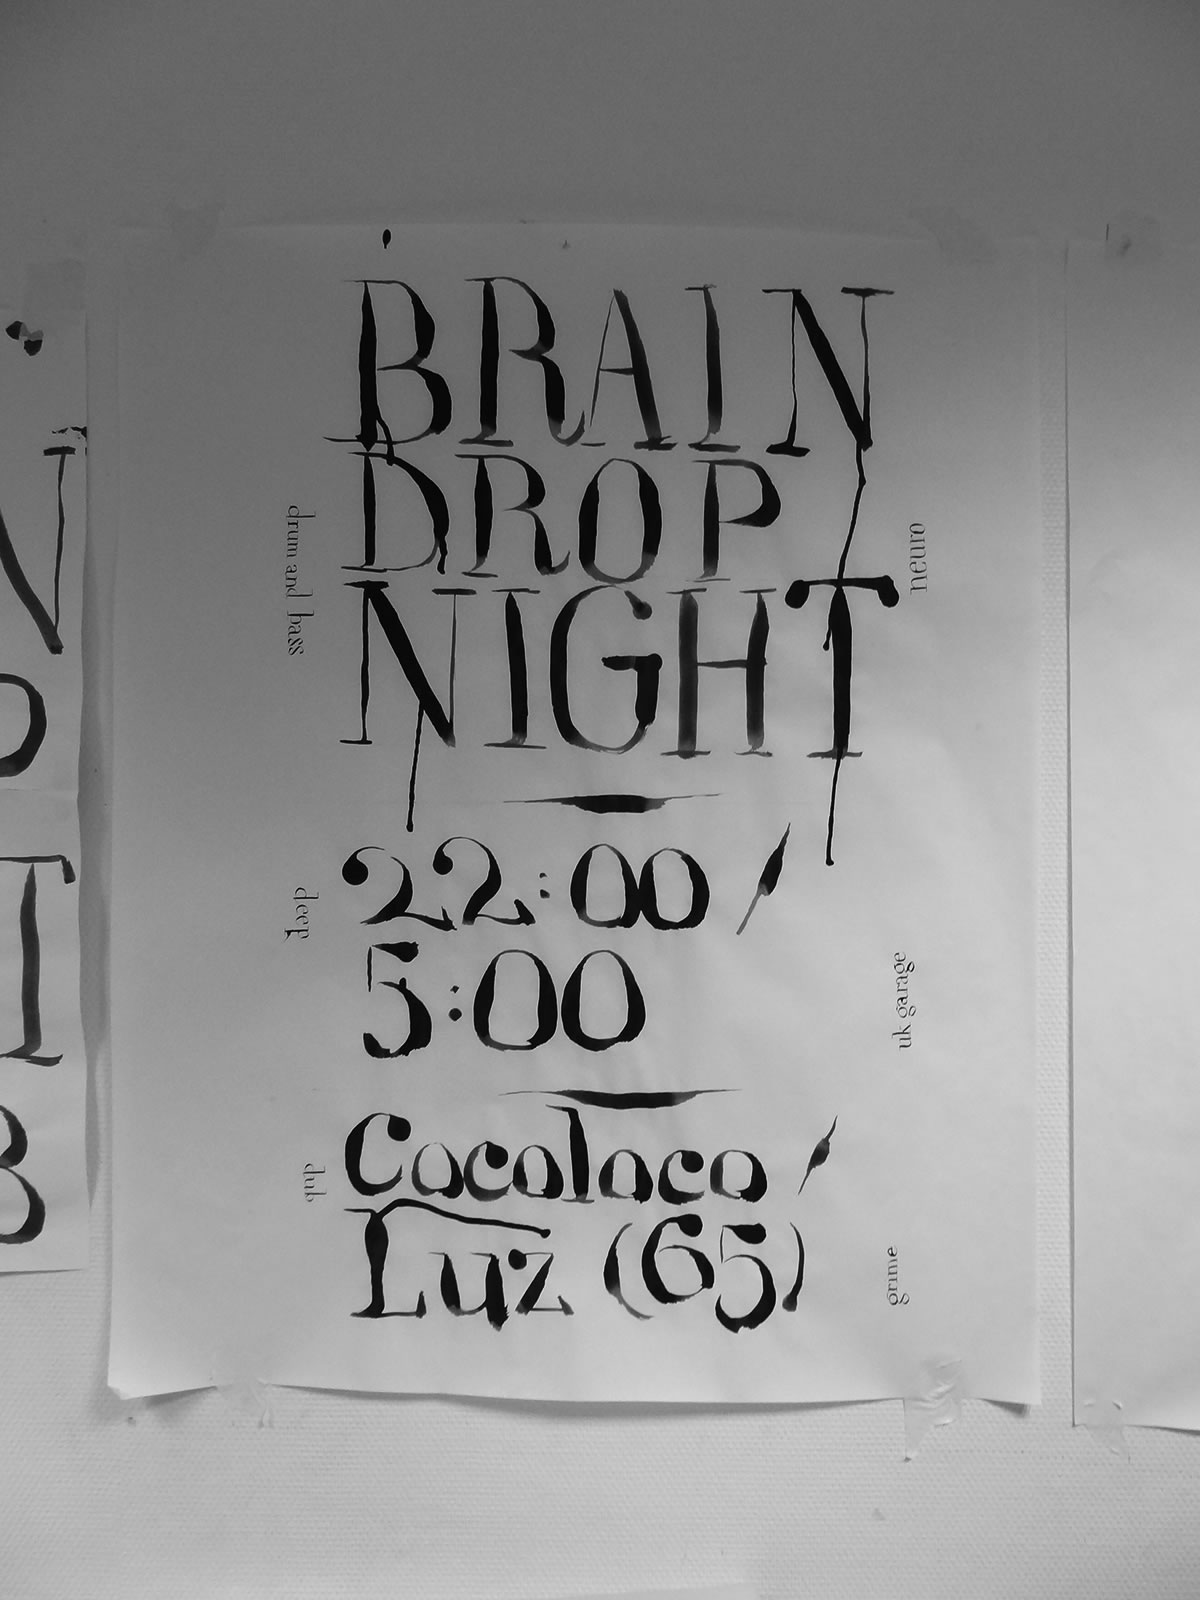 BRAIN
DROP
NIGHT
drum and bass
neuro
22:00 /
5:00
deep
uk garage
Cocoloco /
Luz (65)
dub
grime